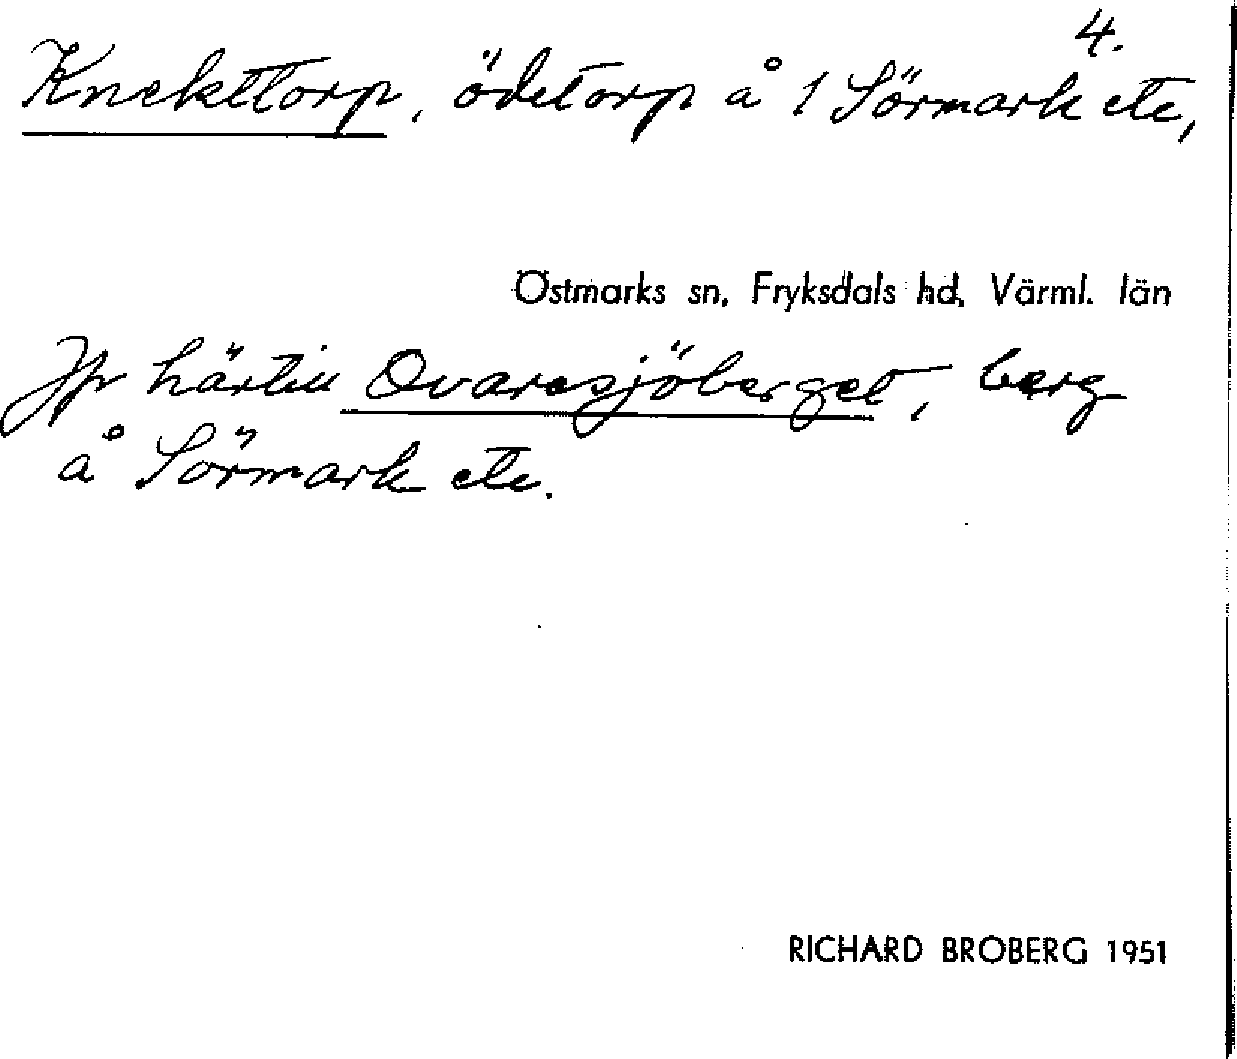 4.
Knekttorp, ödetorp å 1 Sörmark etc,
Östmarks sn, Fryksdals hd, Värml. län
Jfr härtill Ovaresjöberget, berg
å Sörmark etc.
RICHARD BROBERG 1951